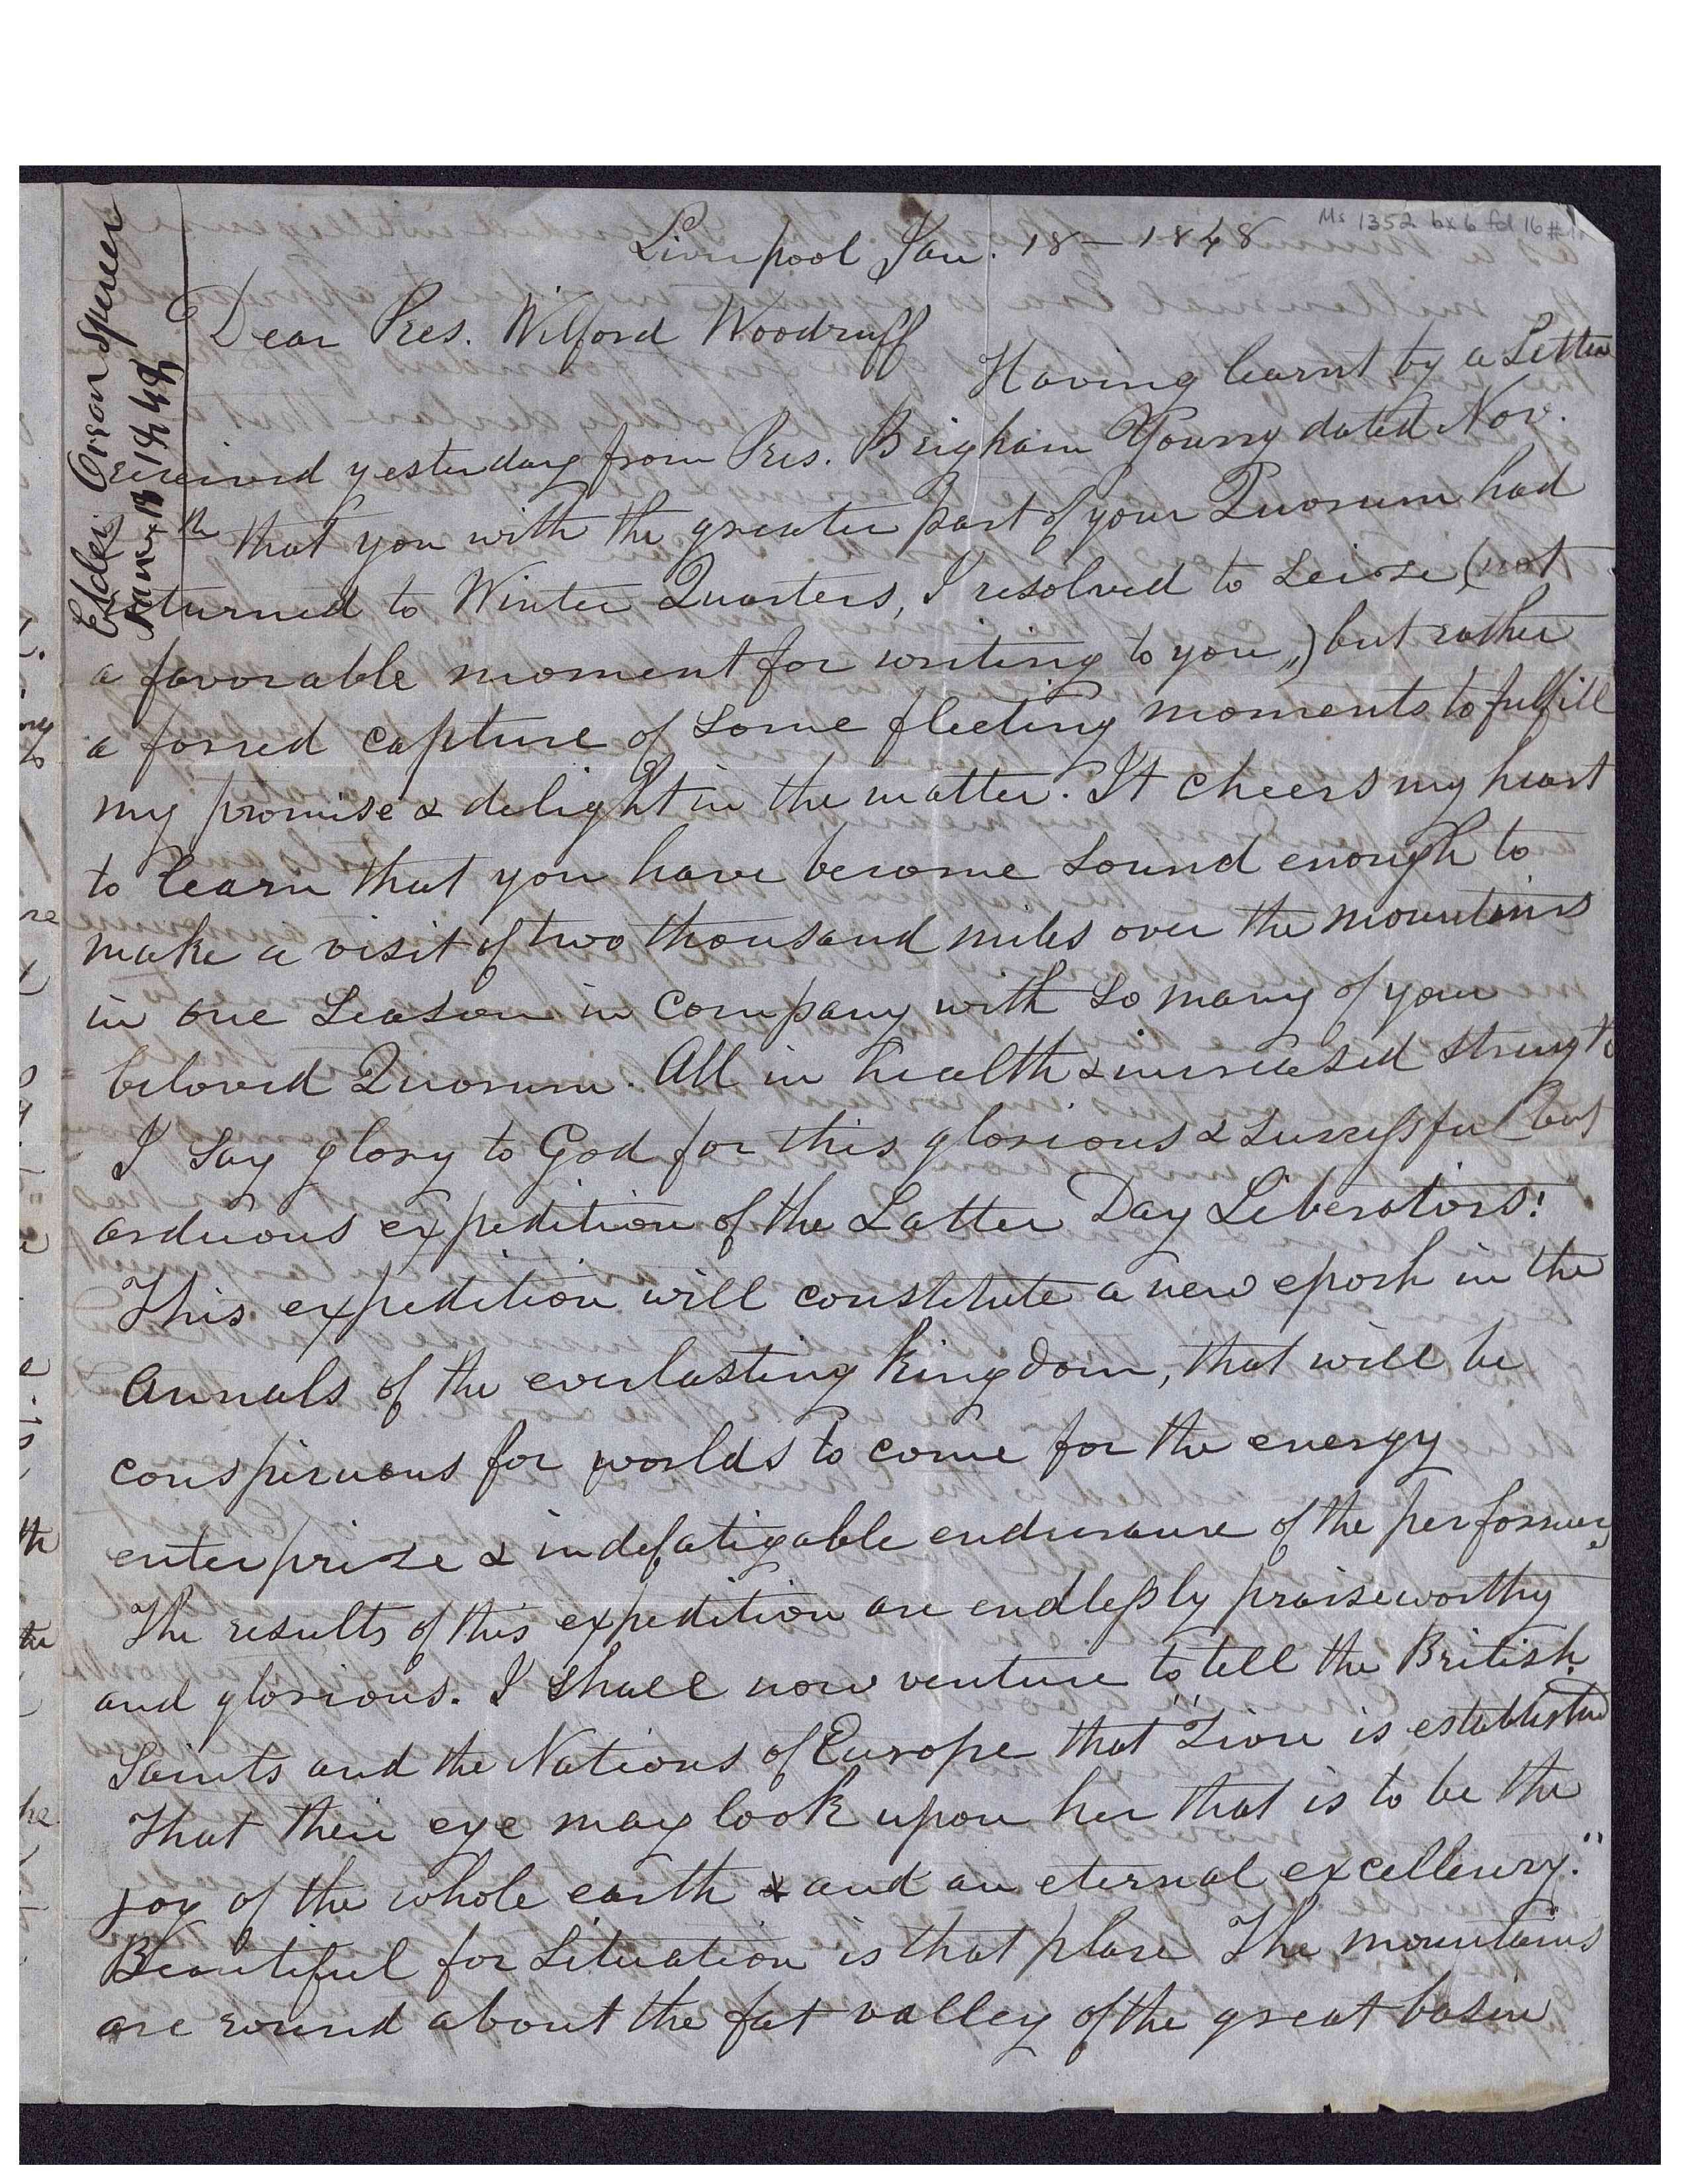 Ms 1352 bx 6 fd 16 #1
Elder Orson Spencer
Jan. 18 1848
Liverpool Jan. 18 – 1848
Dear Pres. Wilford Woodruff
Having learnt by a Letter
received yesterday from Pres. Brigham Young dated Nov.
th that you with the greater part of your Quorum had
returned to Winter Quarters, I resolved to seize (not
a favorable moment for writing to you,) but rather
a forced capture of some fleeting moments to fulfill
my promise & delight in the matter. It cheers my heart
to learn that you have become sound enough to
make a visit of two thousand miles over the mountains
in one season in company with so many of your
beloved Quorum. All in health & increased strength
I say glory to God for this glorious & successful but
arduous expedition of the Latter Day Liberators!
This expedition will constitute a new epoch in the
Annals of the everlasting kingdom, that will be
conspicuous for worlds to come for the energy
enterprize & indefatigable endurance of the performers
The results of this expedition are endlessly praiseworthy
and glorious. I shall now venture to tell the British
Saints and the Nations of Europe that "Zion is established
That their eye may look upon her that is to be the
joy of the whole earth & and an eternal excellency."
Beautiful for situation is that place The mountains
are round about the fat valley of the great basin